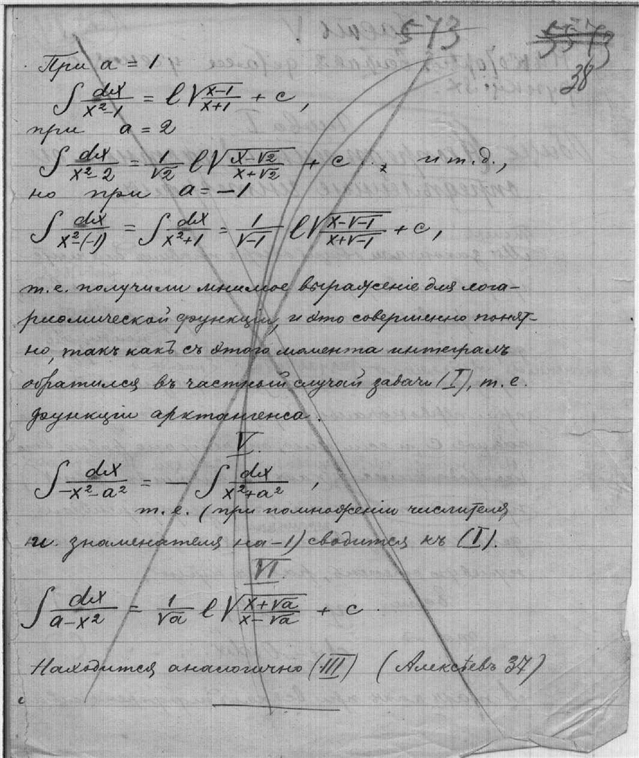 573 5573
38
При a = 1
∫ dx/(x²-1) = l √((x-1)/(x+1)) + c,
при a = 2
∫ dx/(x²-2) = 1/√2 l √((x-√2)/(x+√2)) + c . . , и т.д.,
но при a = -1
∫ dx/(x²-(-1)) = ∫ dx/(x²+1) = 1/√-1 l √((x-√-1)/(x+√-1)) + c,
т.е. получили мнимое выраженіе для лога-
риѳмической функціи, и это совершенно понят-
но, такъ какъ съ этого момента интегралъ
обратился въ частный случай задачи (I), т.е.
функціи арктангенса.
V.
∫ dx/(-x²-a²) = - ∫ dx/(x²+a²) ,
т.е. (при помноженіи числителя
и знаменателя на -1) сводится къ (I).
VI
∫ dx/(a-x²) = 1/√a l √((x+√a)/(x-√a)) + c .
Находится аналогично (III) (Алексѣевъ 37)